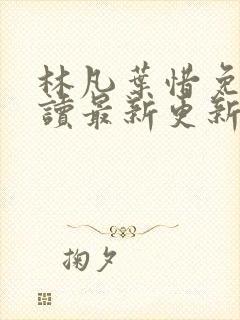 林凡葉惜免
讀最新更新
掬夕